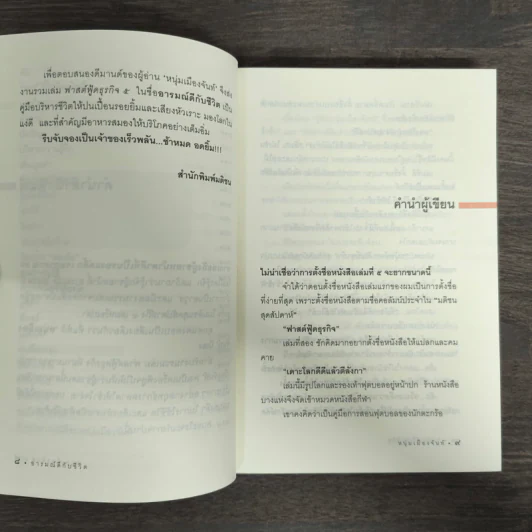 เพื่อตอบสนองดีมานด์ของผู้อ่าน ‘หนุ่มเมืองจันท์’ จึงส่ง
งานรวมเล่ม ฟาสต์ฟู้ดธุรกิจ ๕ ในชื่ออารมณ์ดีกับชีวิต เป็น
คู่มือบริหารชีวิตให้ปนเปื้อนรอยยิ้มและเสียงหัวเราะ มองโลกใน
แง่ดี และที่สำคัญมีอาหารสมองให้บริโภคอย่างเต็มอิ่ม
รีบจับจองเป็นเจ้าของเร็วพลัน...ช้าหมด อดยิ้ม!!!
สำนักพิมพ์มติชน
๘ • อารมณ์ดีกับชีวิต
คำนำผู้เขียน
ไม่น่าเชื่อว่าการตั้งชื่อหนังสือเล่มที่ ๕ จะยากขนาดนี้
จำได้ว่าตอนตั้งชื่อหนังสือเล่มแรกของผมเป็นการตั้งชื่อ
ที่ง่ายที่สุด เพราะตั้งชื่อหนังสือตามชื่อคอลัมน์ประจำใน “มติชน
สุดสัปดาห์”
“ฟาสต์ฟู้ดธุรกิจ”
เล่มที่สอง ชักคิดมากอยากตั้งชื่อหนังสือให้แปลกและคม
คาย
“เคาะโลกดีดีแล้วตีลังกา”
เล่มนี้มีรูปโลกและรองเท้าฟุตบอลอยู่หน้าปก ร้านหนังสือ
บางแห่งจึงจัดเข้าหมวดหนังสือกีฬา
เขาคงคิดว่าเป็นคู่มือการสอนฟุตบอลของนักตะกร้อ
หนุ่มเมืองจันท์ • ๙